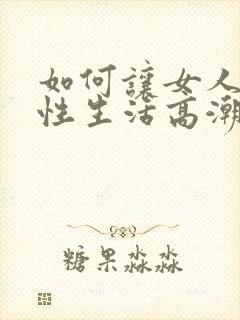 如何讓女人
性生活高潮
糖果淼淼